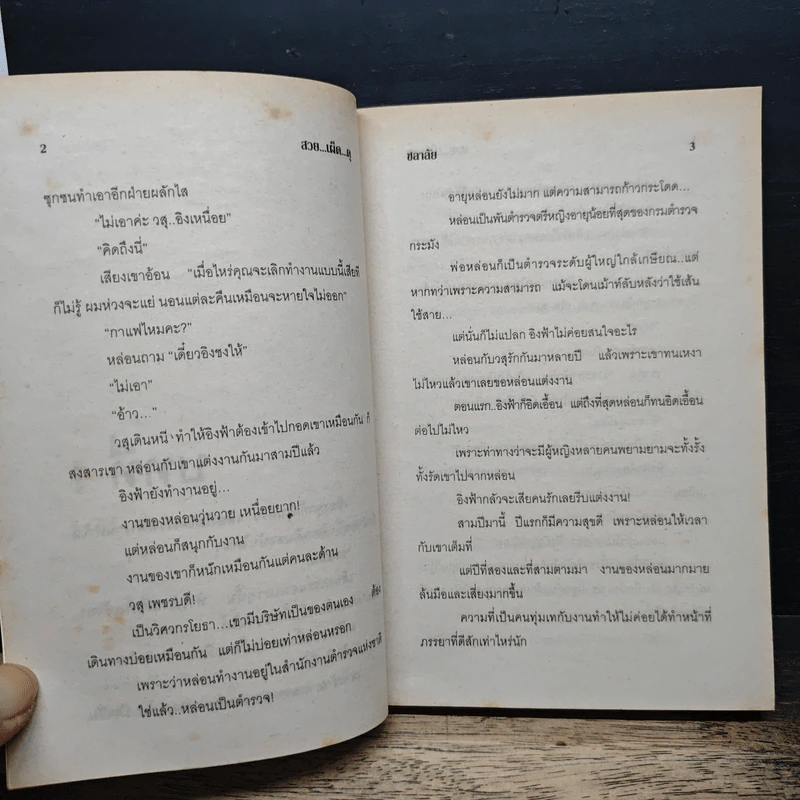 2
สวย...เผ็ด...ดุ
ซุกซนทำเอาอีกฝ่ายผลักไส
"ไม่เอาค่ะ วสุ..อิงเหนื่อย"
"คิดถึงนี่"
เสียงเขาอ้อน "เมื่อไหร่คุณจะเลิกทำงานแบบนี้เสียที
ก็ไม่รู้ ผมห่วงจะแย่ นอนแต่ละคืนเหมือนจะหายใจไม่ออก"
"กาแฟไหมคะ?"
หล่อนถาม "เดี๋ยวอิงชงให้"
"ไม่เอา"
"อ้าว..."
วสุเดินหนี ทำให้อิงฟ้าต้องเข้าไปกอดเขาเหมือนกัน ก็
สงสารเขา หล่อนกับเขาแต่งงานกันมาสามปีแล้ว
อิงฟ้ายังทำงานอยู่...
งานของหล่อนวุ่นวาย เหนื่อยยาก!
แต่หล่อนก็สนุกกับงาน
งานของเขาก็หนักเหมือนกันแต่คนละด้าน
วสุ เพชรบดี!
เป็นวิศวกรโยธา...เขามีบริษัทเป็นของตนเอง ต้อง
เดินทางบ่อยเหมือนกัน แต่ก็ไม่บ่อยเท่าหล่อนหรอก
เพราะว่าหล่อนทำงานอยู่ในสำนักงานตำรวจแห่งชาติ
ใช่แล้ว..หล่อนเป็นตำรวจ!
ชลาลัย
3
อายุหล่อนยังไม่มาก แต่ความสามารถก้าวกระโดด...
หล่อนเป็นพันตำรวจตรีหญิงอายุน้อยที่สุดของกรมตำรวจ
กระมัง
พ่อหล่อนก็เป็นตำรวจระดับผู้ใหญ่ใกล้เกษียณ..แต่
หากทว่าเพราะความสามารถ แม้จะโดนเม้าท์ลับหลังว่าใช้เส้น
ใช้สาย...
แต่นั่นก็ไม่แปลก อิงฟ้าไม่ค่อยสนใจอะไร
หล่อนกับวสุรักกันมาหลายปี แล้วเพราะเขาทนเหงา
ไม่ไหวแล้วเขาเลยขอหล่อนแต่งงาน
ตอนแรก..อิงฟ้าก็อิดเอื้อน แต่ถึงที่สุดหล่อนก็ทนอิดเอื้อน
ต่อไปไม่ไหว
เพราะท่าทางว่าจะมีผู้หญิงหลายคนพยายามจะทั้งรั้ง
ทั้งรัดเขาไปจากหล่อน
อิงฟ้ากลัวจะเสียคนรักเลยรีบแต่งงาน!
สามปีมานี้ ปีแรกก็มีความสุขดี เพราะหล่อนให้เวลา
กับเขาเต็มที่
แต่ปีที่สองและที่สามตามมา งานของหล่อนมากมาย
ล้นมือและเสี่ยงมากขึ้น
ความที่เป็นคนทุ่มเทกับงานทำให้ไม่ค่อยได้ทำหน้าที่
ภรรยาที่ดีสักเท่าไหร่นัก